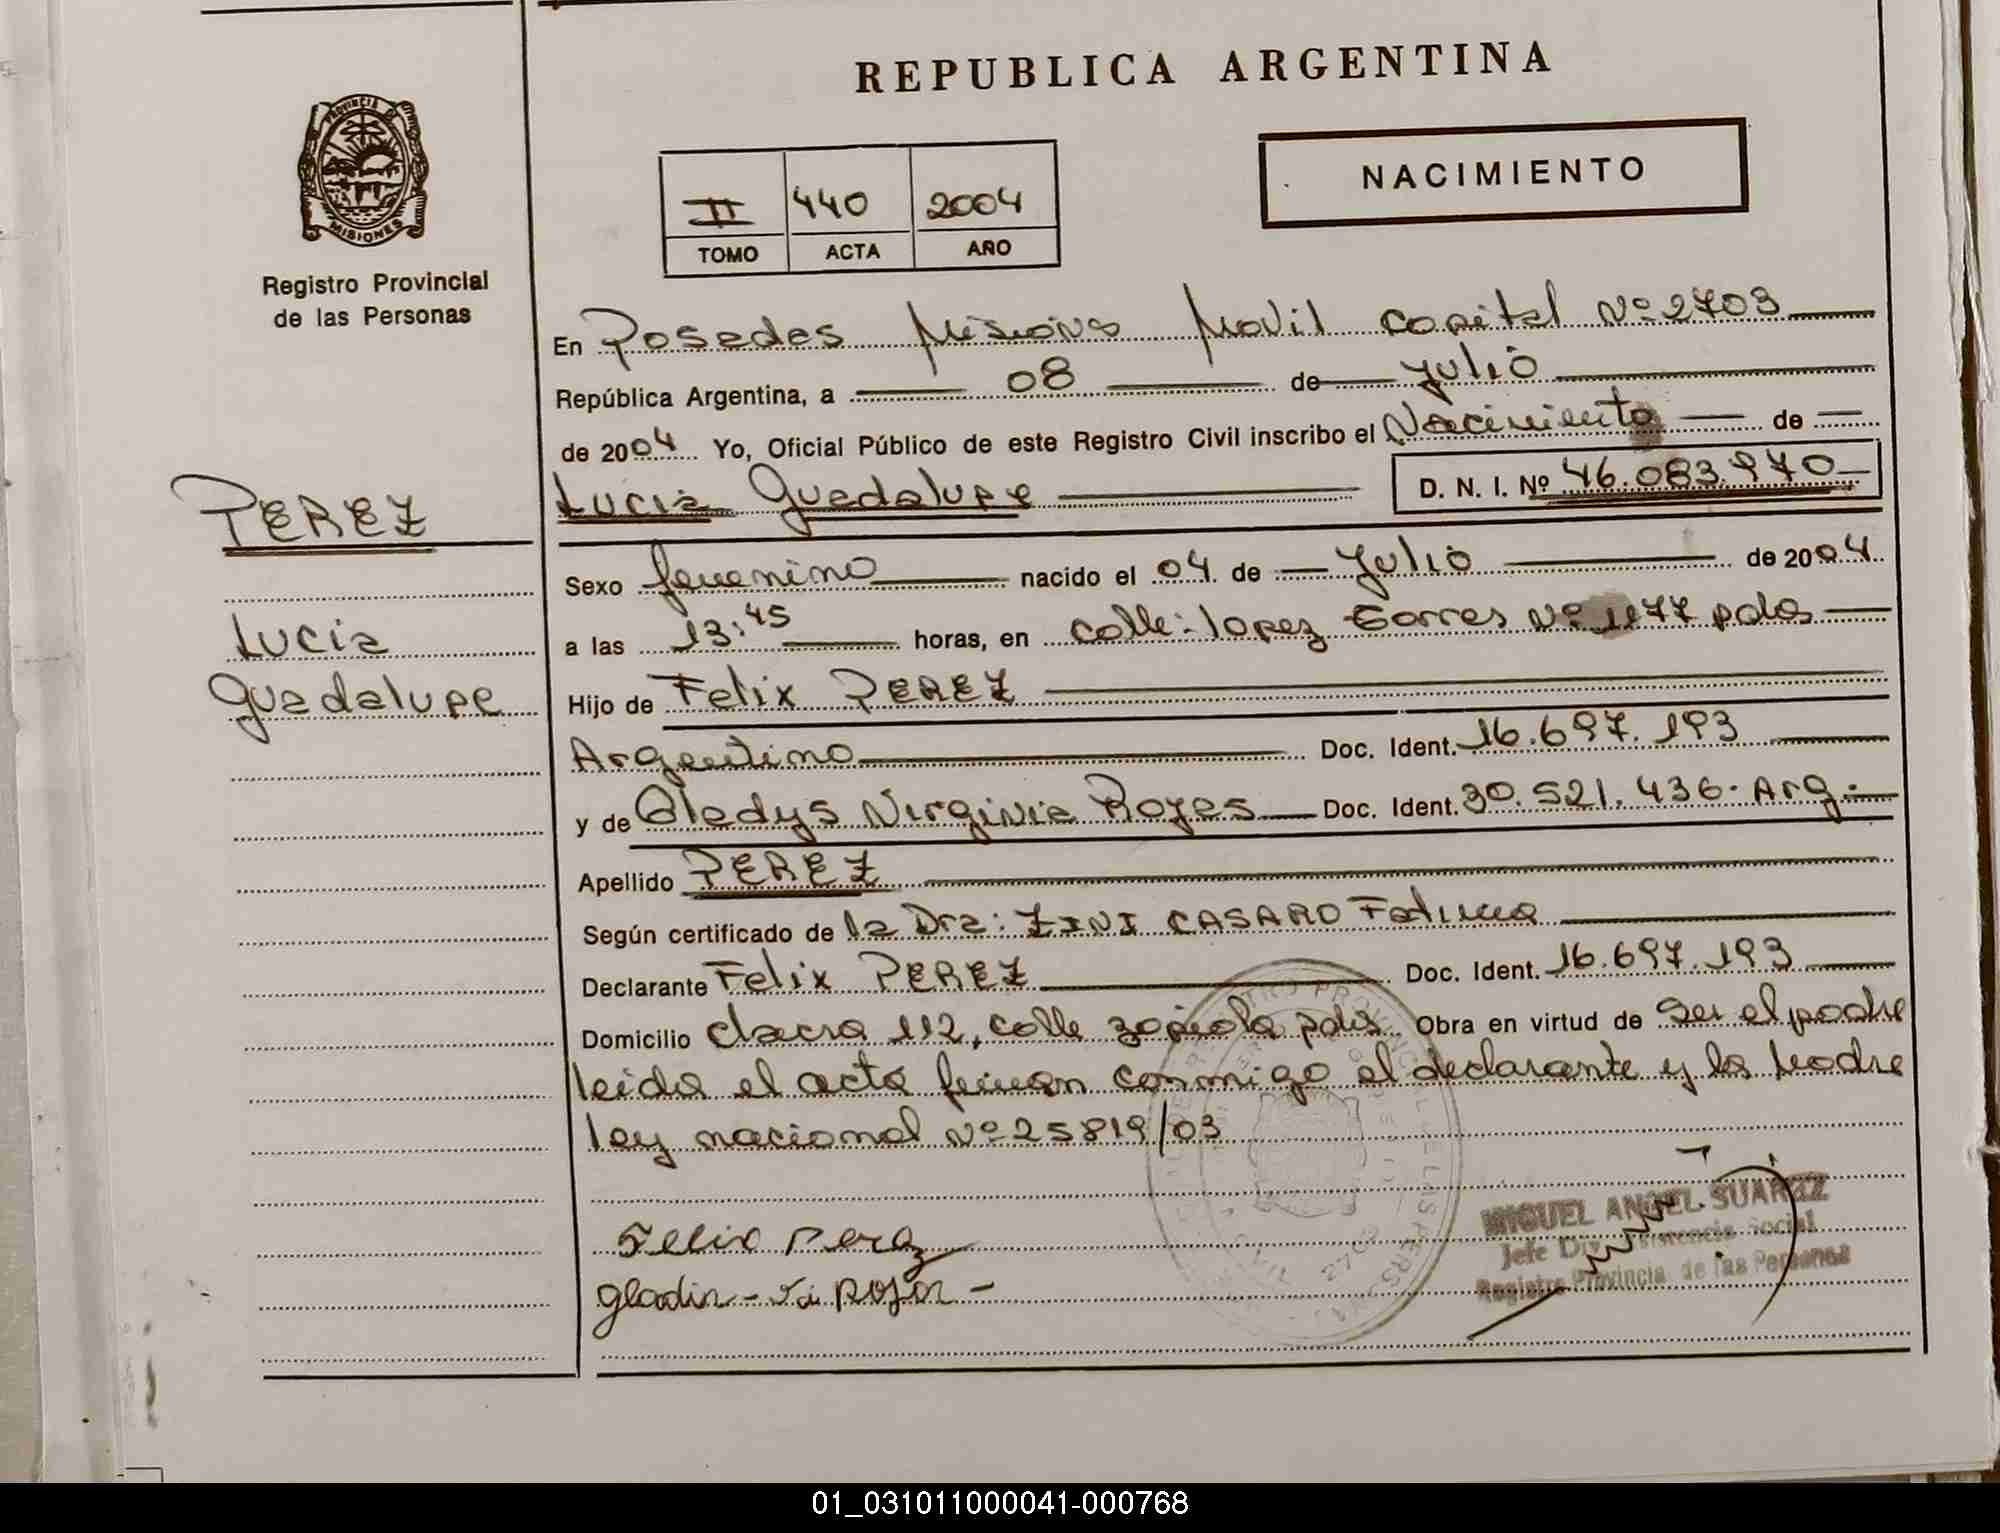 REPUBLICA ARGENTINA
NACIMIENTO
PROVINCIA DE
MISIONES
Registro Provincial
de las Personas
II 440 2004
TOMO ACTA AÑO
En Posadas Misiones Movil capital Nº 2703
República Argentina, a 08 de Julio
de 2004 Yo, Oficial Público de este Registro Civil inscribo el Nacimiento de
Lucia Guadalupe D. N. I. Nº 46.083.970
PEREZ
Lucia
Guadalupe
Sexo femenino nacido el 04 de Julio de 2004
a las 13:45 horas, en calle: lopez torres Nº 1177 pdas
Hijo de Felix PEREZ
Argentino Doc. Ident. 16.697.193
y de Gladys Virginia Rojas Doc. Ident. 30.521.436. Arg.
Apellido PEREZ
Según certificado de la Dra: ZINI CASARO Fatima
Declarante Felix PEREZ Doc. Ident. 16.697.193
Domicilio chacra 112, calle zapiola pdas Obra en virtud de ser el padre
leida el acta firman conmigo el declarante y la Madre
ley nacional Nº 25819/03
Felix Perez
MIGUEL ANGEL SUAREZ
Jefe Div. Asistencia Social
Registro Provincial de las Personas
01_031011000041-000768